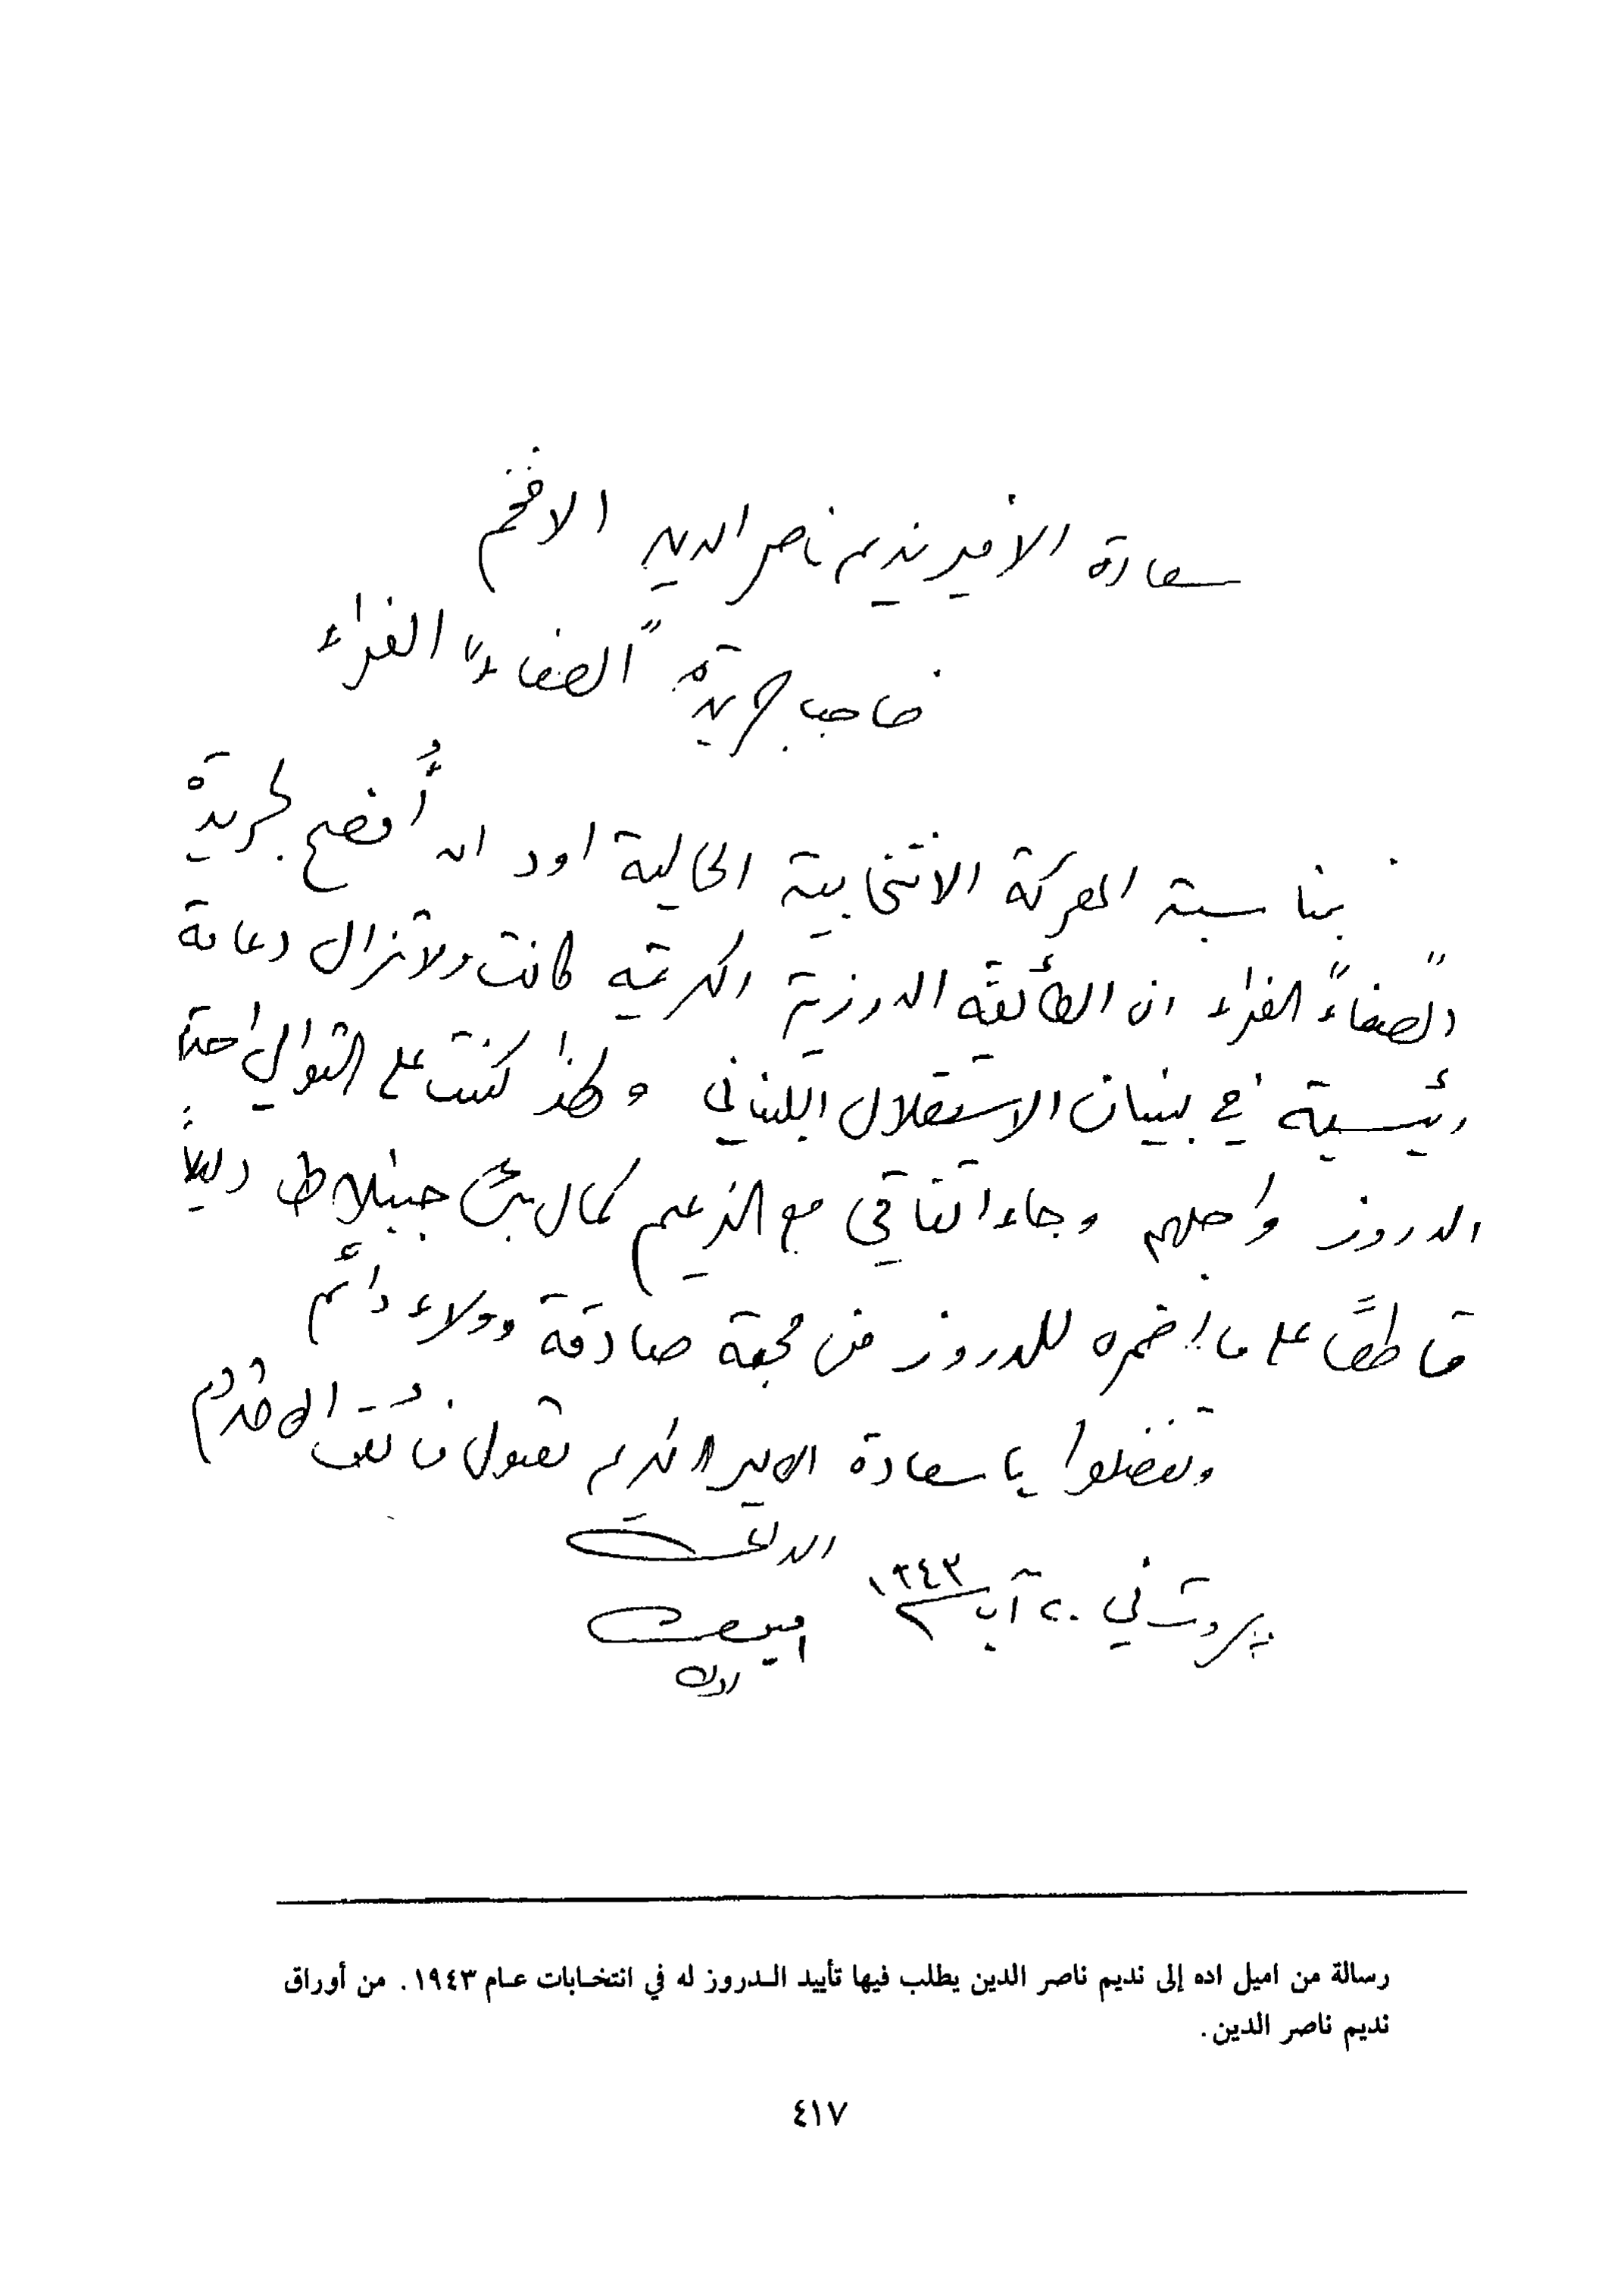 سعادة الامير نديم ناصر الدين الافخم
صاحب جريدة "الصفاء" الغراء
بمناسبة المعركة الانتخابية الحالية اود ان أفصح لجريدة
"الصفاء" الغراء ان الطائفة الدرزية الكريمة كانت ولا تزال دعامة
رئيسية في بنيان الاستقلال اللبناني ولهذا كنت على التوالي احترم
الدروز واجلهم وجاء اتفاقي مع الزعيم كمال بك جنبلاط دليلاً
قاطعاً على ما اضمره للدروز من محبة صادقة وولاء دائم
وتفضلوا يا سعادة الامير الكريم بقبول فائق الاحترام
الداعي
بيروت في ٢٠ آب ١٩٤٣
اميل
اده
رسالة من اميل اده إلى نديم ناصر الدين يطلب فيها تأييد الـدروز له في انتخـابات عـام ١٩٤٣. من أوراق
نديم ناصر الدين.
٤١٧